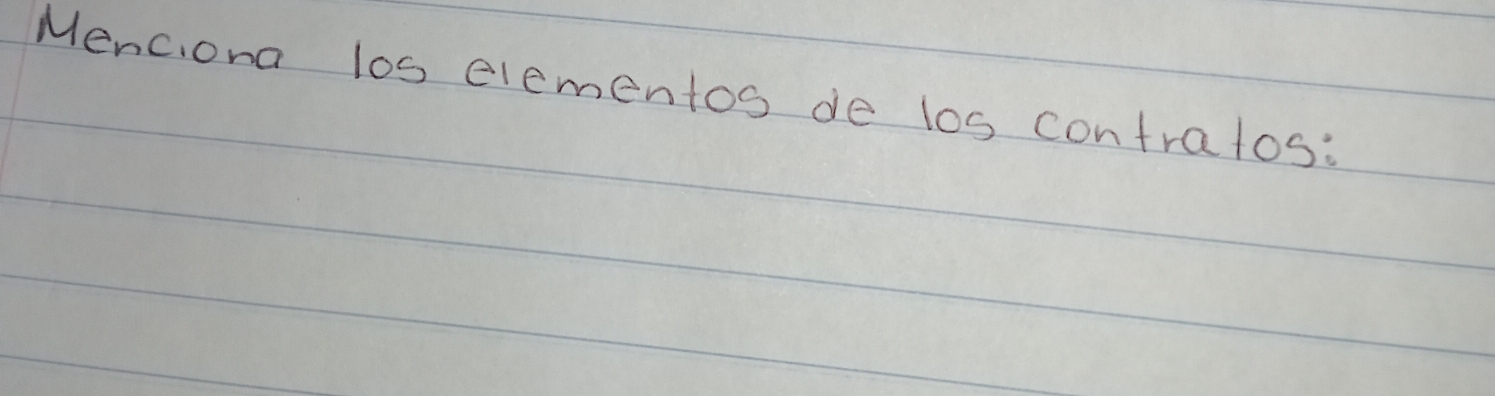 Menciona los elementos de los contratos: